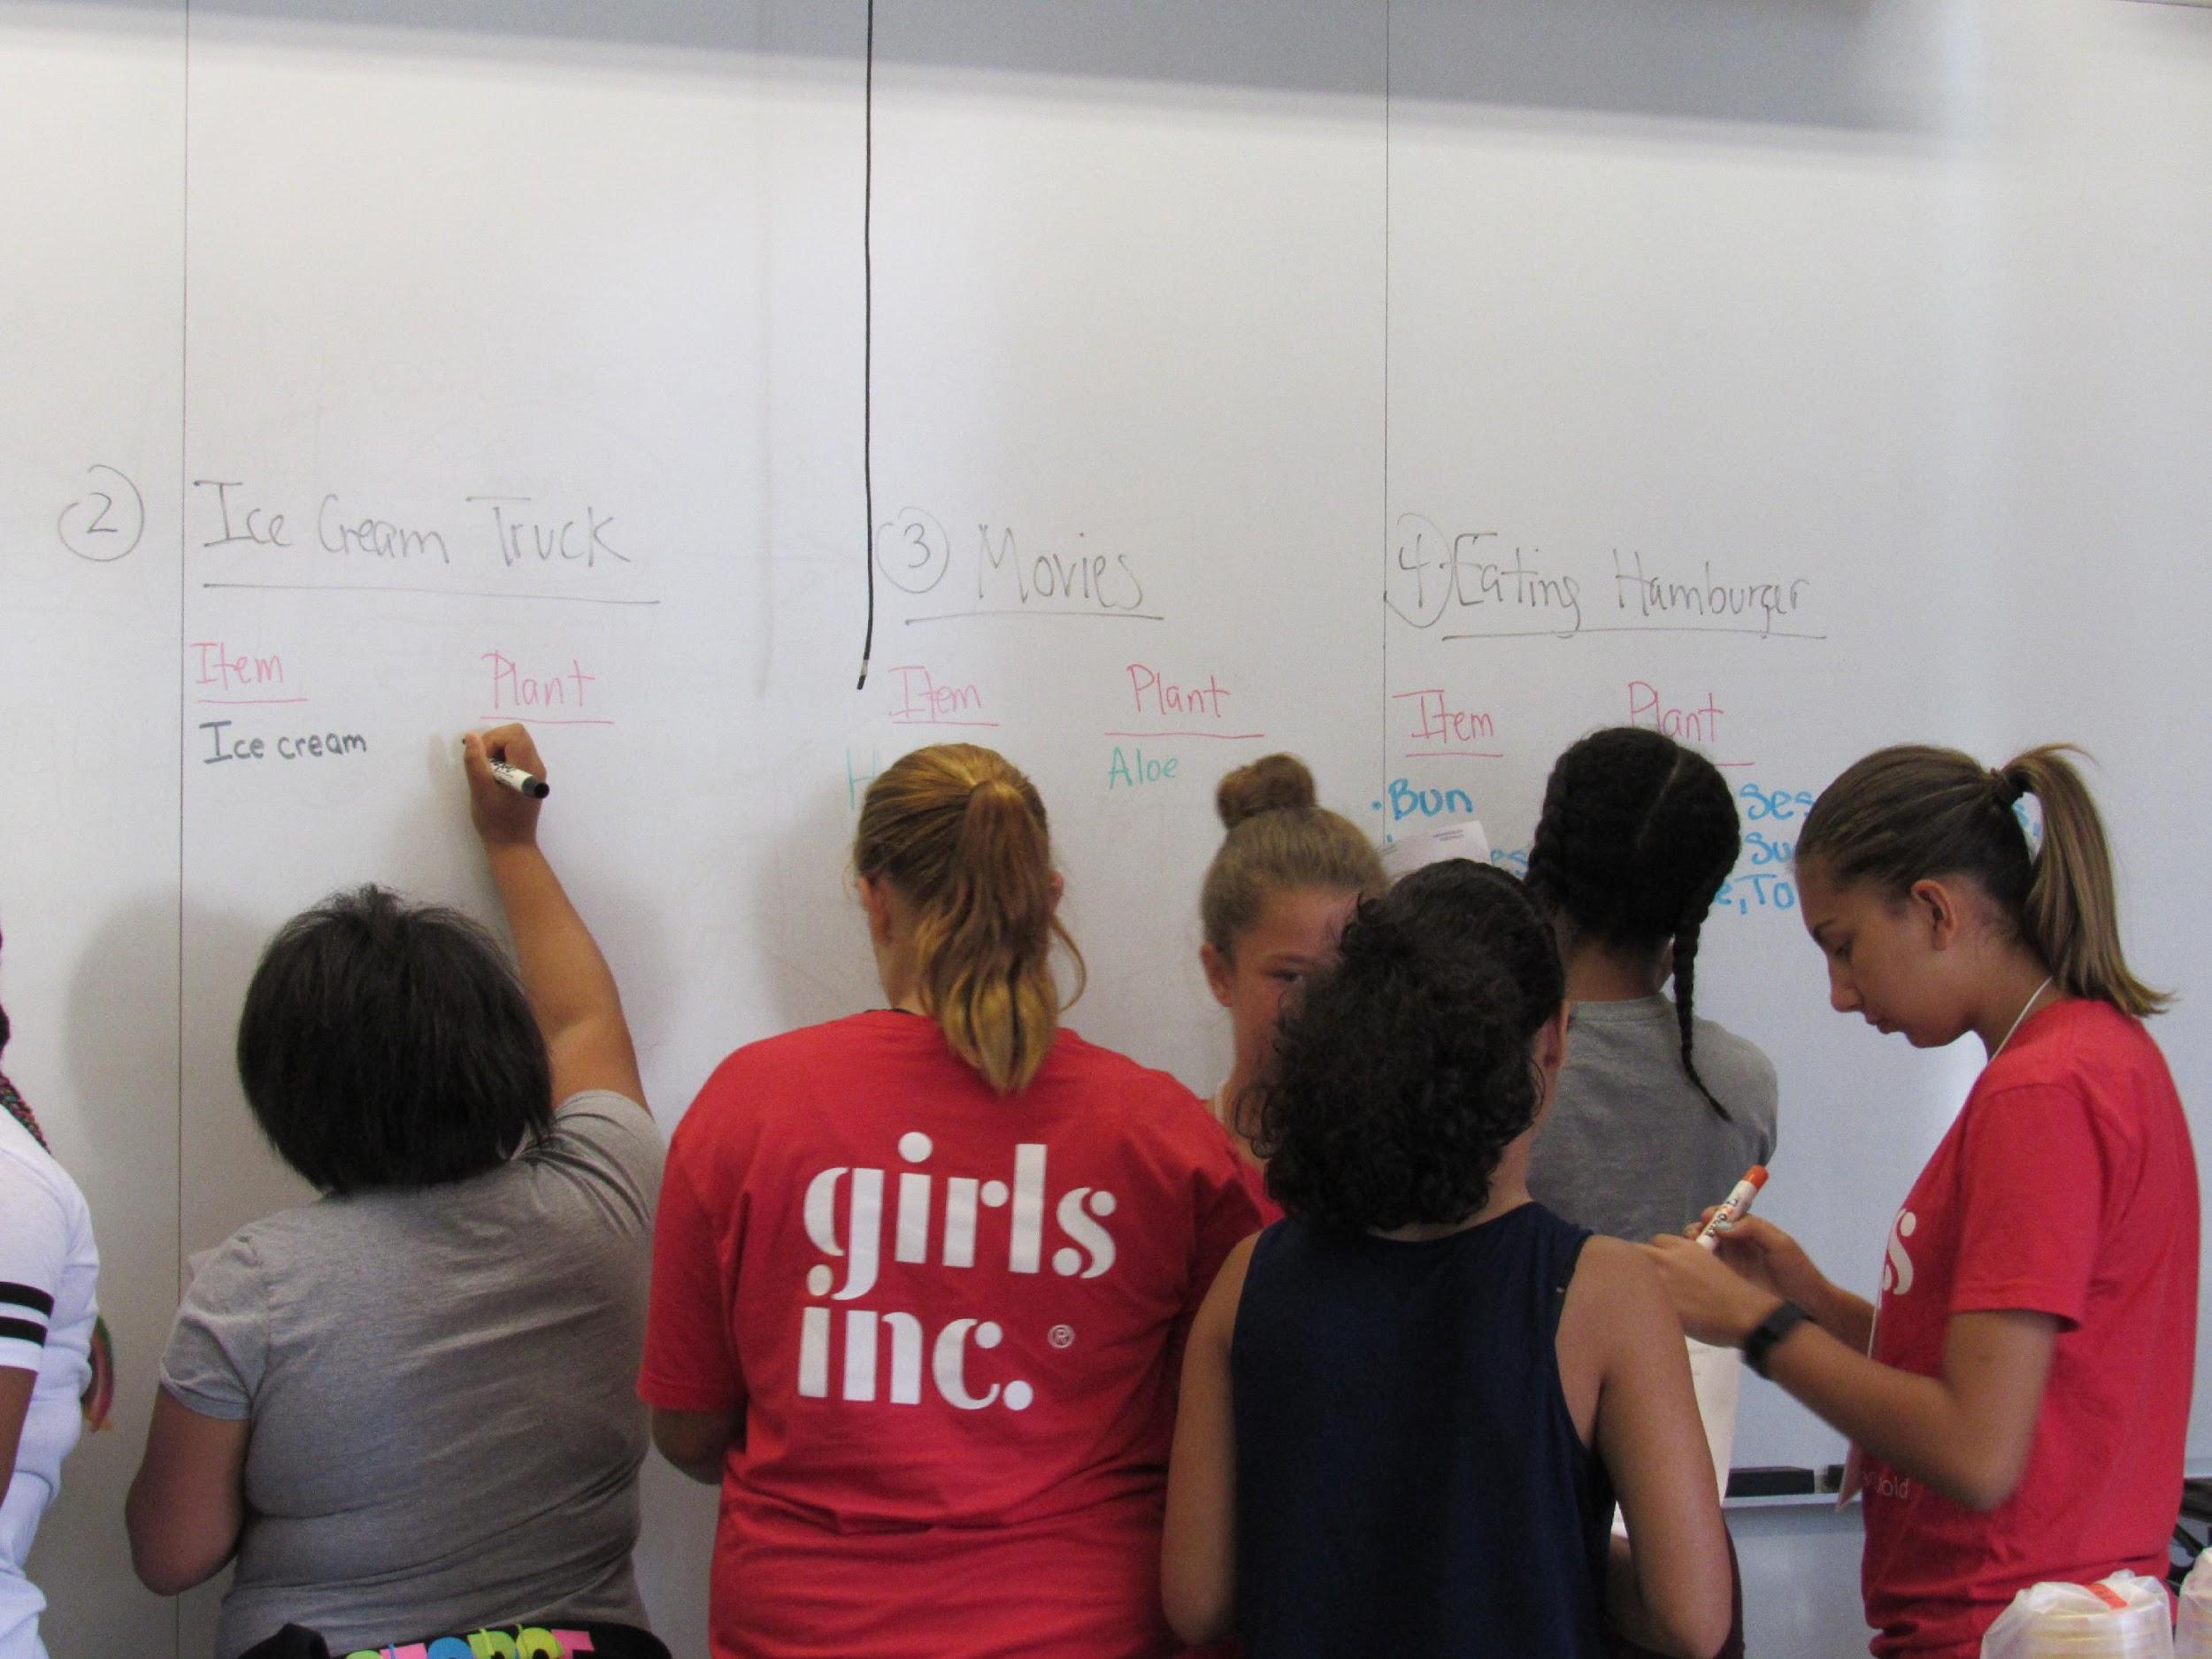 2 Ice Cream Truck
Item Plant
Ice cream
3 Movies
Item Plant
Aloe
4 Eating Hamburger
Item Plant
• Bun
girls
inc.®